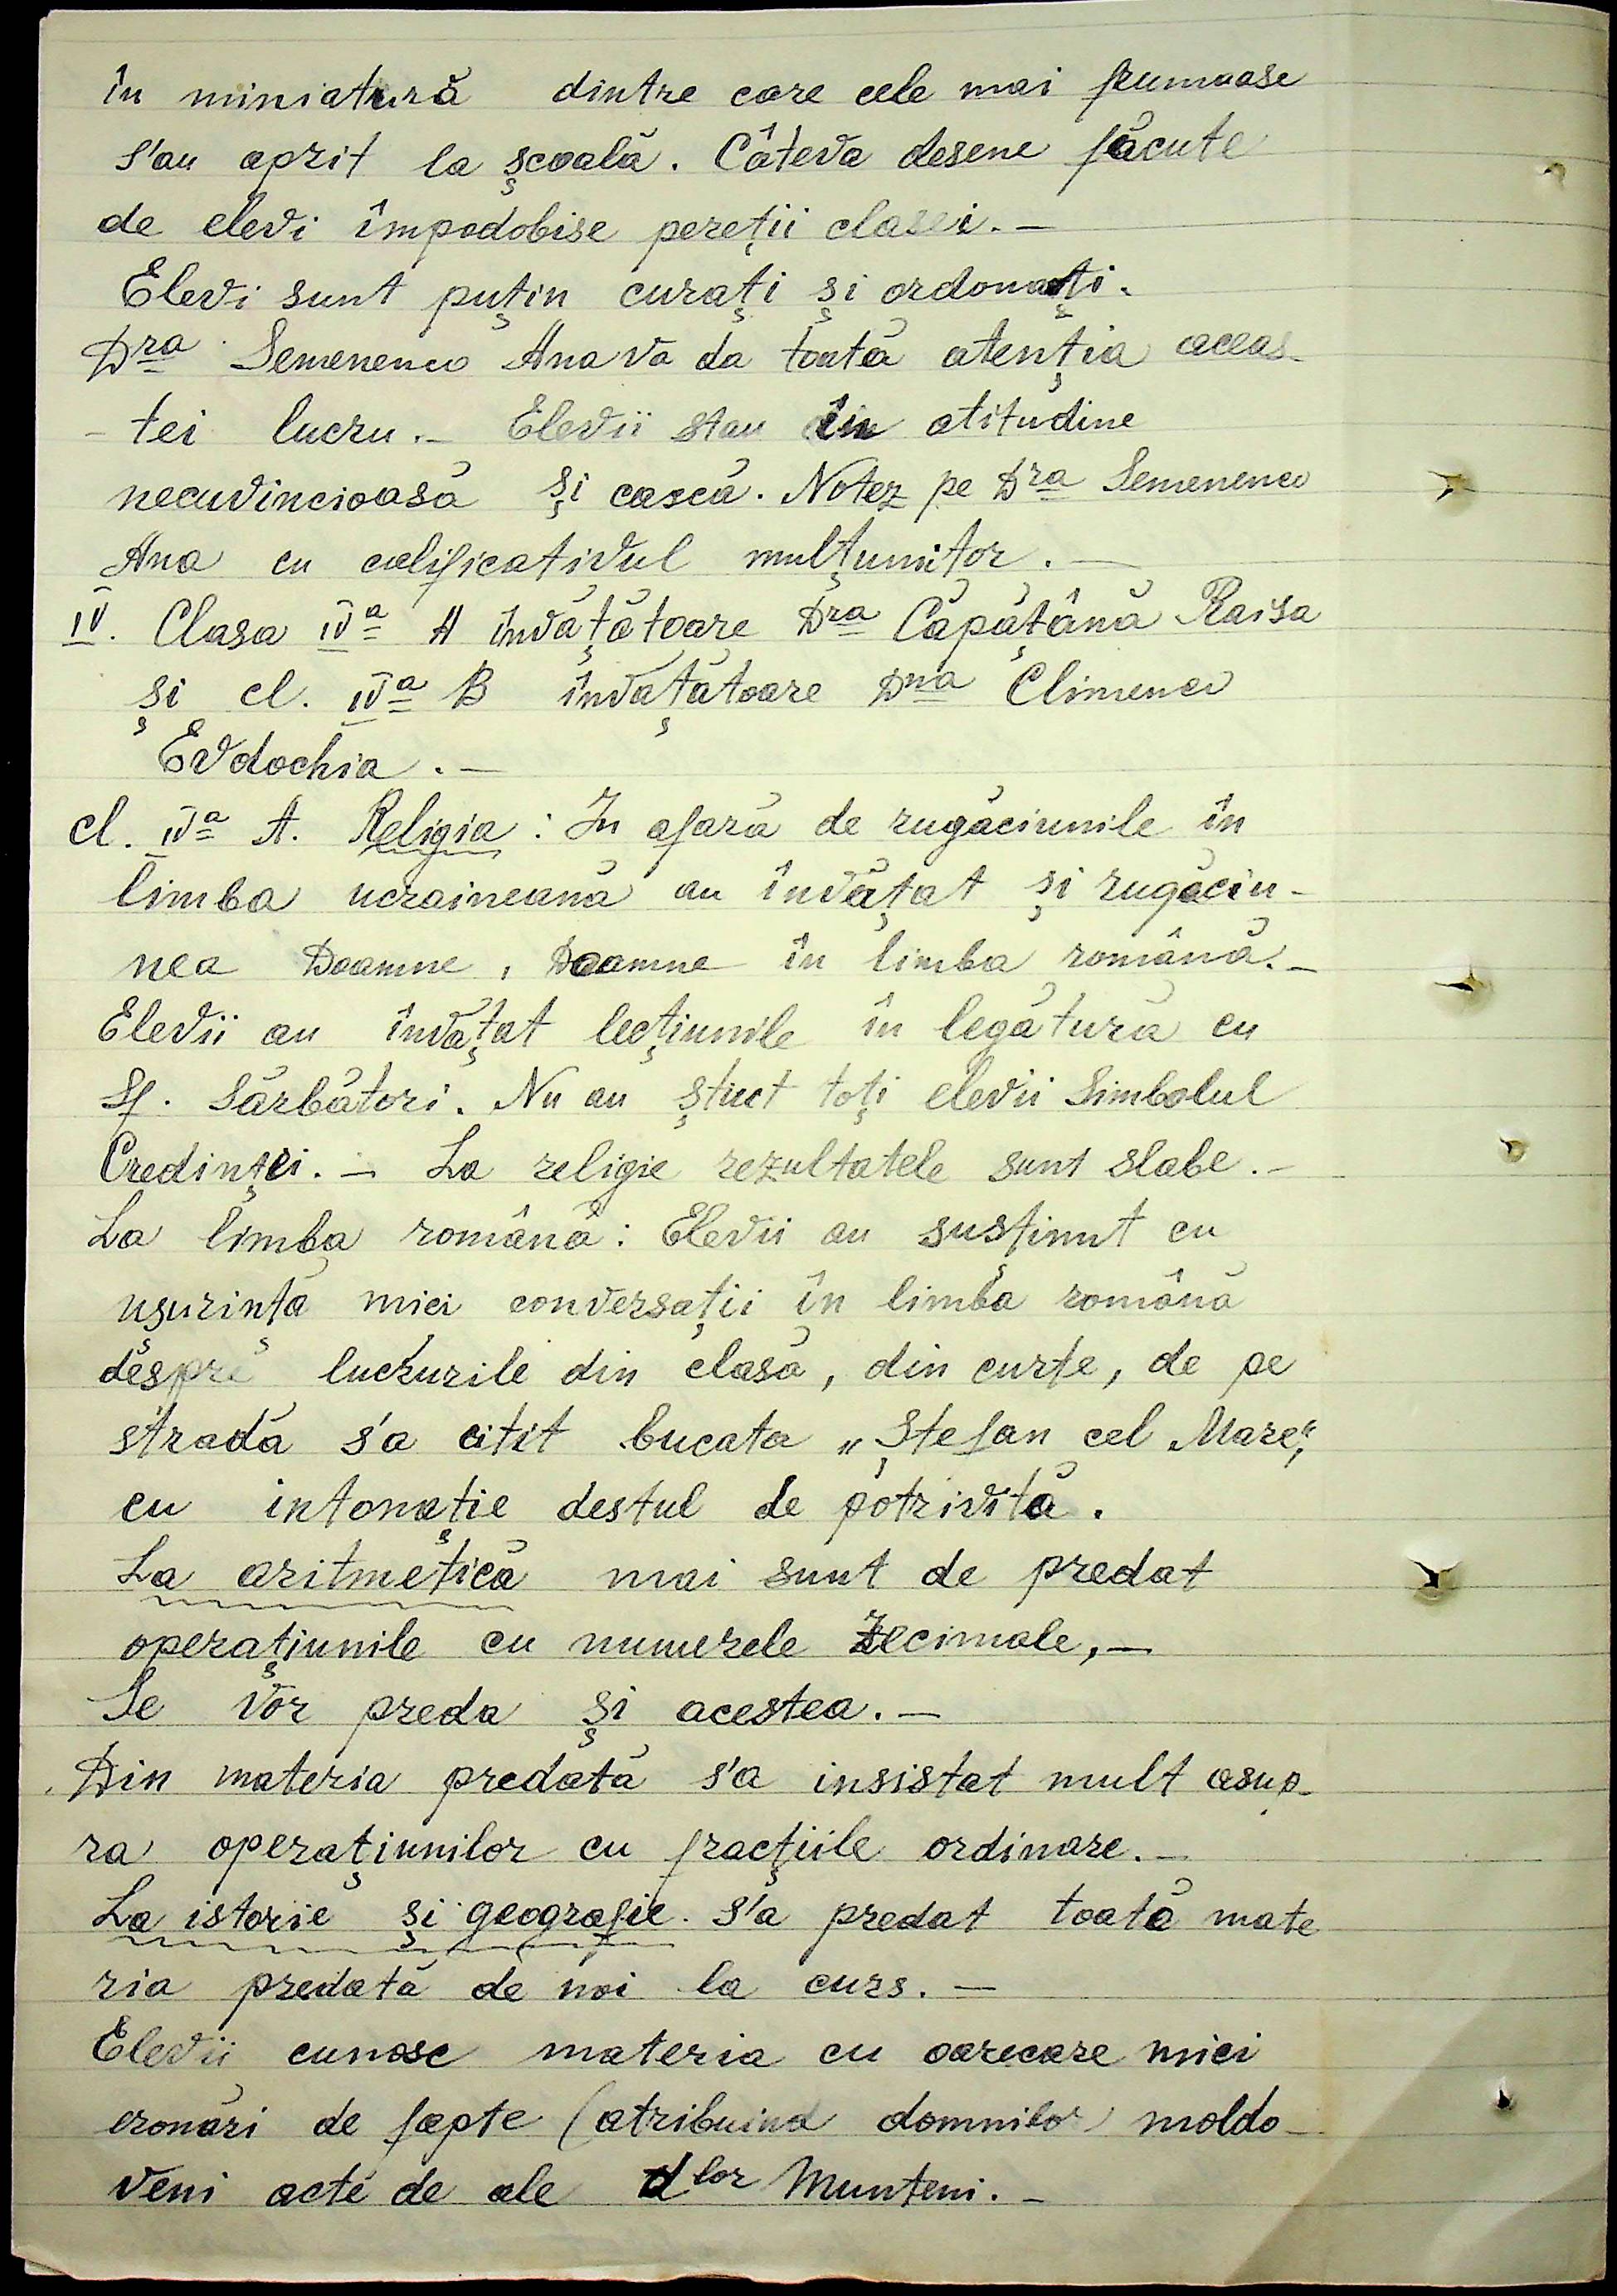 în miniatură dintre care cele mai frumoase
s'au oprit la școală. Câteva desene făcute
de elevi împodobise pereții clasei. —
Elevi sunt puțin curați și ordonați.
Dra Semenenco Ana va da toată atenția aceas-
- tei lucru. — Elevii stau în atitudine
necuvincioasă și cască. Notez pe Dra Semenenco
Ana cu calificativul mulțumitor. —
IV. Clasa IVa A învățătoare Dra Căpățână Raisa
și cl. IVa B învățătoare Dna Climenco
Evdochia. —
cl. IVa A. Religia: In afară de rugăciunile în
limba ucraineană au învățat și rugăciu-
nea Doamne, Doamne în limba română. —
Elevii au învățat lecțiunile în legătură cu
Sf. Sărbători. Nu au știut toți elevii Simbolul
Credinței. — La religie rezultatele sunt slabe. —
La limba română: Elevii au susținut cu
ușurință mici conversații în limba română
despre lucrurile din clasă, din curte, de pe
stradă s'a citit bucata „Ștefan cel Mare",
cu intonație destul de potrivită.
La aritmetică mai sunt de predat
operațiunile cu numerele zecimale, —
Se vor preda și acestea. —
Din materia predată s'a insistat mult asup-
ra operațiunilor cu fracțiile ordinare. —
La istorie și geografie. s'a predat toată mate
ria predată de noi la curs. —
Elevii cunosc materia cu oarecare mici
eronări de fapte (atribuind domnilor moldo-
veni acte de ale dlor Munteni. —